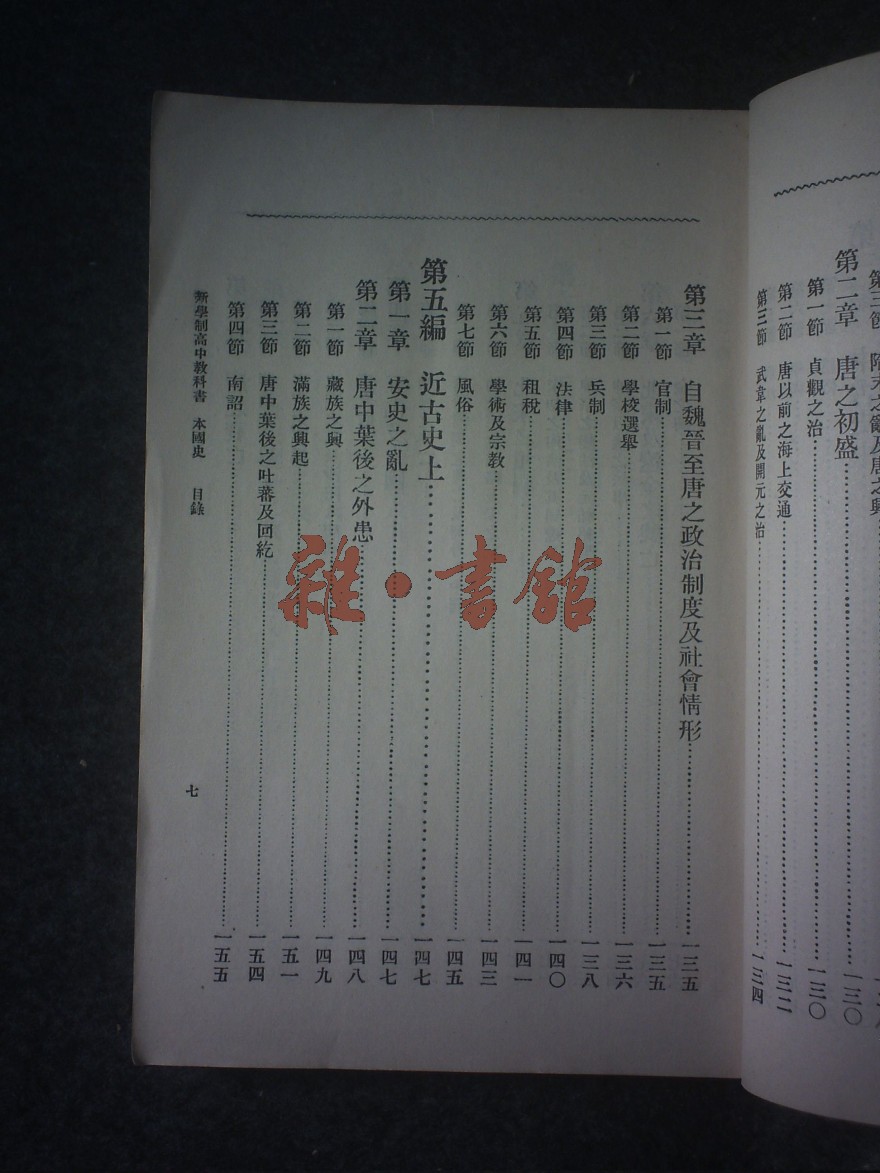 第二章　唐之初盛 一三〇
第一節　貞觀之治 一三〇
第二節　唐以前之海上交通 一三二
第三節　武韋之亂及開元之治 一三四
第三章　自魏晉至唐之政治制度及社會情形 一三五
第一節　官制 一三五
第二節　學校選舉 一三六
第三節　兵制 一三八
第四節　法律 一四〇
第五節　租稅 一四一
第六節　學術及宗教 一四三
第七節　風俗 一四五
第五編　近古史上 一四七
第一章　安史之亂 一四七
第二章　唐中葉後之外患 一四八
第一節　藏族之興 一四九
第二節　滿族之興起 一五一
第三節　唐中葉後之吐蕃及回紇 一五四
第四節　南詔 一五五
新學制高中教科書　本國史　目錄
七
雜·書館